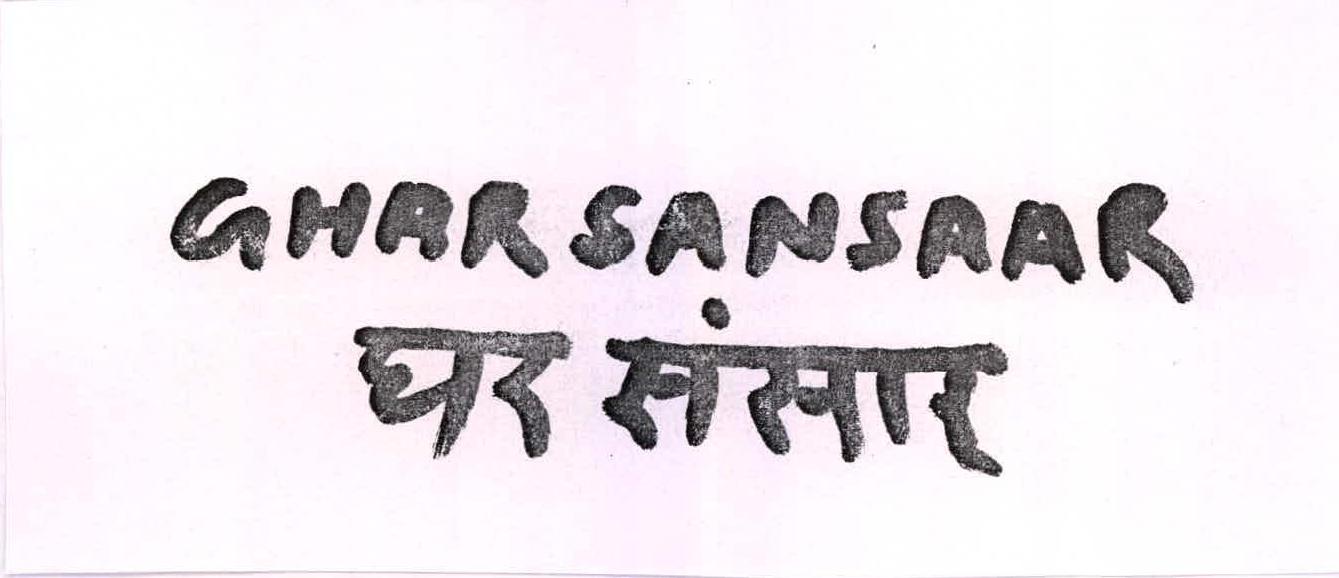 GHAR SANSAAR
घर संसार